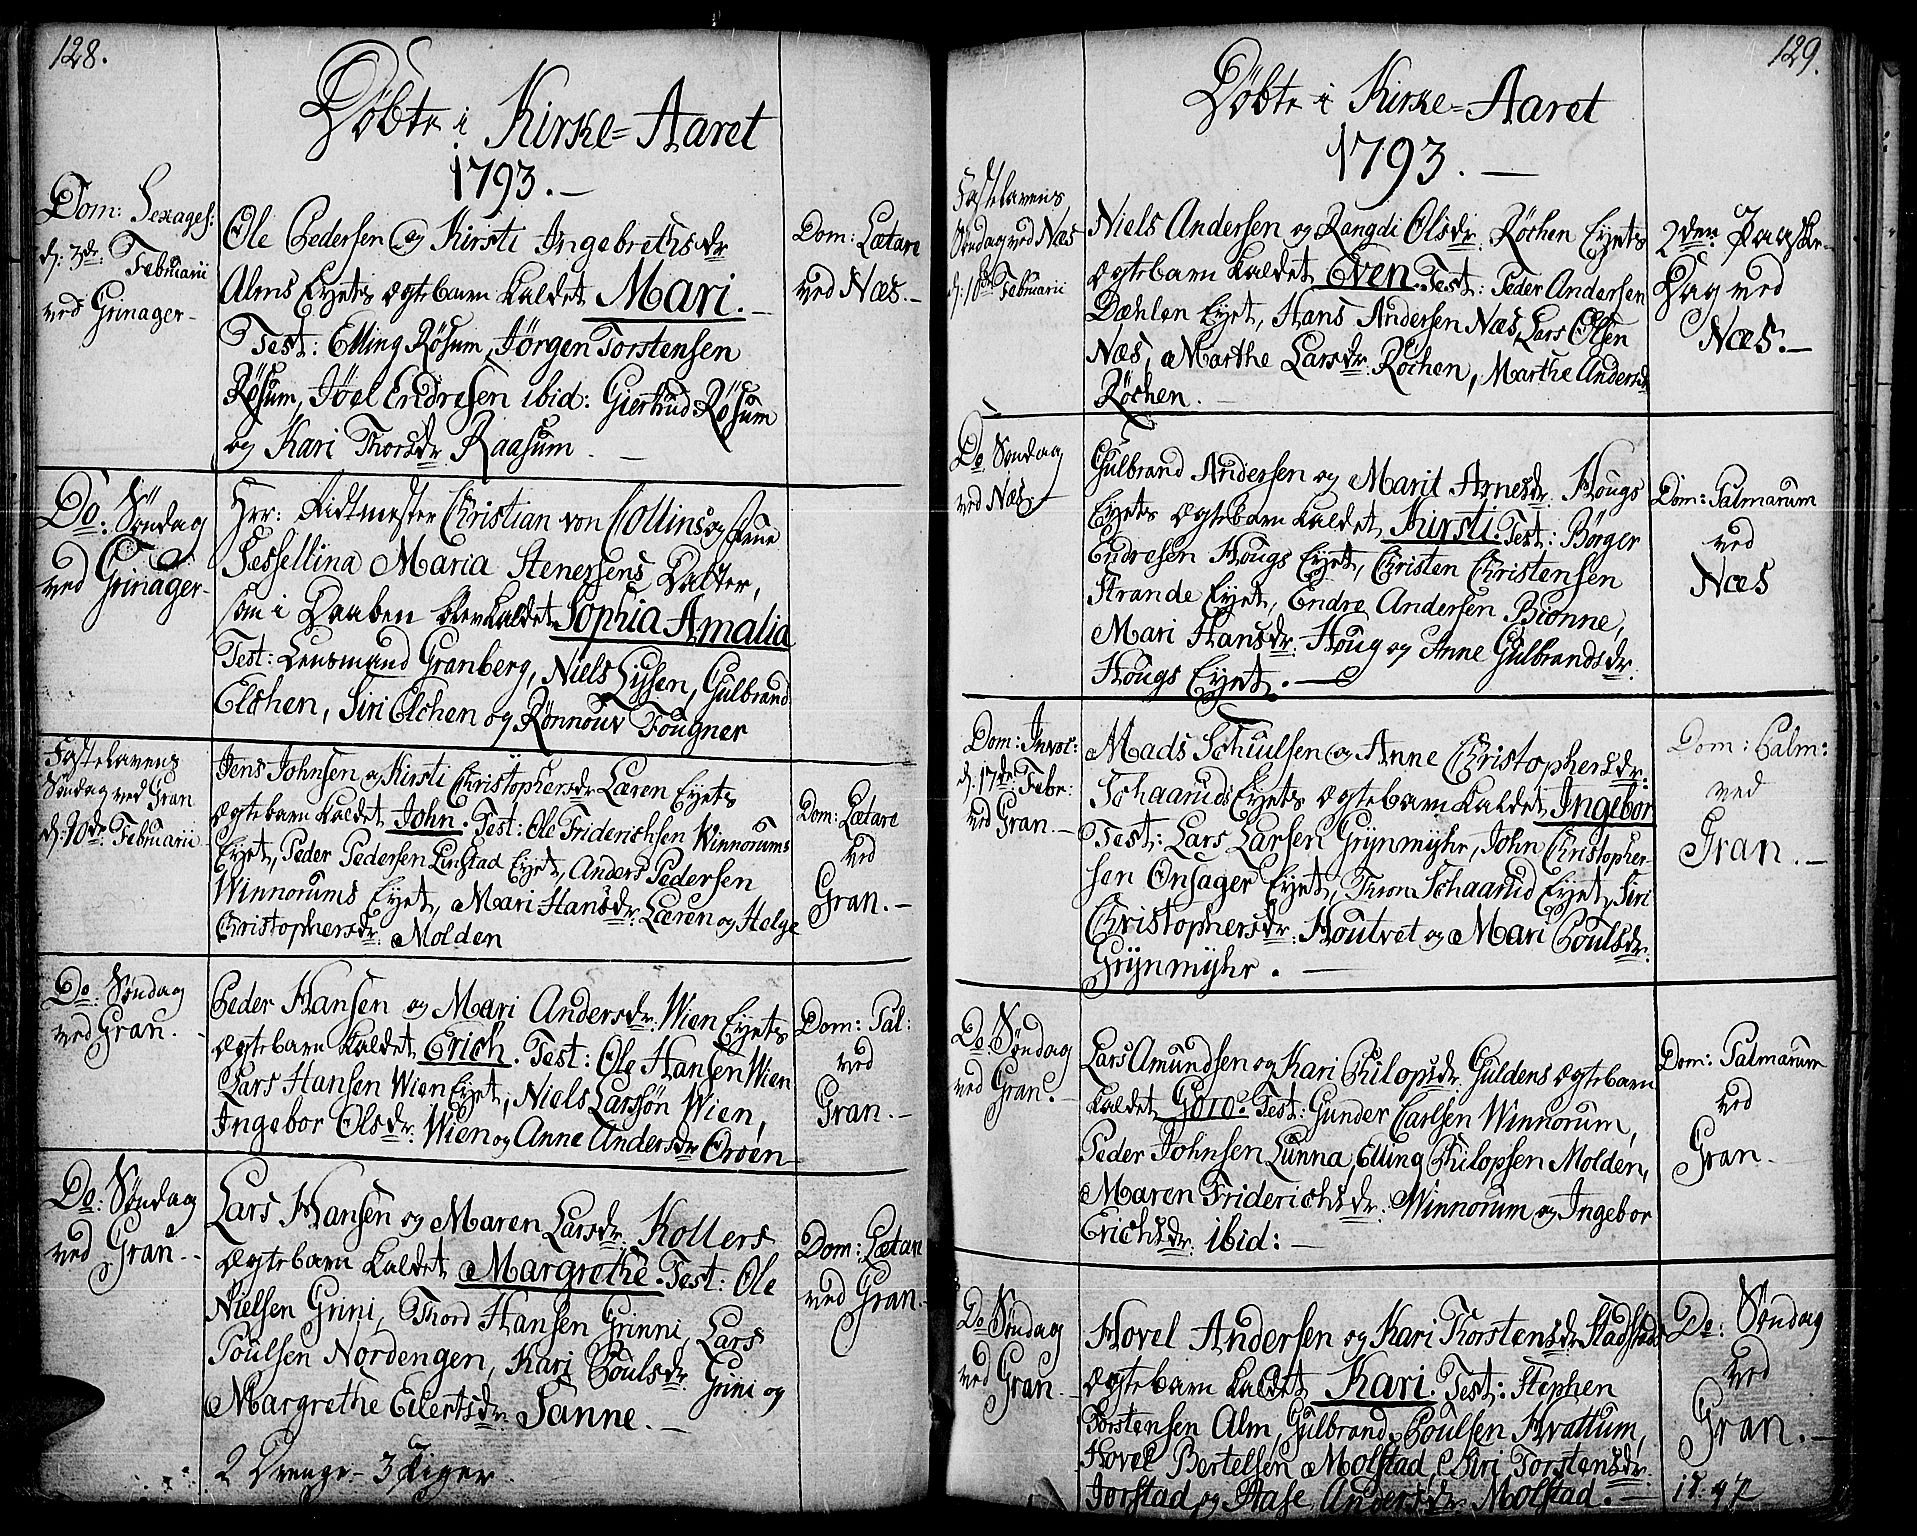 128.
Døbte i Kirke=Aaret
1793. —
Dom: Sexages:
d: 3de: Februarii
ved Grinager-
Ole Pedersen og Kirsti Ingebrethsdr
Alms Eyets Ægtebarn kaldet Mari. —
Test: Elling Røsum, Jörgen Torstensen
Røsum, Jöel Endresen ibid: Giertrud Røsum
og Kari Thorsdr Raasum. —
Dom: Lætare
ved Næs. —
Do: Söndag
ved Grinager-
Hrr: Ritmester Christian von Collins og Frue
Maria Stenersens Datter,
som i Daaben blev kaldet Sophia Amalia
Test: Lensmand Granberg, Niels Lysen, Gulbrand
Elchen, Siri Elchen og Rønnouv Fougner
Fastelavens
Søndag ved Gran
d: 10de: Februarii
Jens Johnsen og Kirsti Christophersdr Læren Eyets
Ægtebarn kaldet John. Test: Ole Friderichsen Winnorums
Eyet, Peder Pedersen Linstad Eyet, Anders Pedersen
Winnorums Eyet, Mari Hansdr. Læren og Helge
Christophersdr: Molden
Dom: Lætare
ved
Gran. —
Do: Søndag
ved Gran. -
Peder Hansen og Mari Andersdr: Wien Eyets
Ægtebarn kaldet Erich. Test: Ole Hansen Wien
Lars Hansen Wien Eyet, Niels Larssön Wien,
Ingebor Olsdr: Wien og Anne Andersdr Oroen
Dom: Pal:
ved
Gran. —
Do: Søndag
ved Gran. -
Lars Hansen og Maren Larsdr: Kollers
Ægtebarn kaldet Margrethe. Test: Ole
Nielsen Grini, Thord Hansen Grinni, Lars
Poulsen Nordengen, Kari Poulsdr Grini og
Margrethe Eilertsdr: Sanne. —
Dom: Lætare
ved Gran. -
2 Drenge - 3 Piger.
129.
Døbte i Kirke=Aaret
1793. —
Fastelavens
Søndag ved Næs
d: 10de Februarii
Niels Andersen og Rangdi Olsdr: Röchen Eyets
Ægtebarn kaldet Even. Test: Peder Andersen
Dæhlen Eyet, Hans Andersen Næs, Lars Olsen
Næs, Marthe Larsdr: Röchen, Marthe Andersdr
Röchen. —
2den Paaske-
Dag ved
Næs. —
Do Søndag
ved Næs. -
Gulbrand Andersen og Marit Arnesdr. Hougs
Eyets Ægtebarn kaldet Kirsti. Test: Børger
Endresen Hougs Eyet, Christen Christensen
Strande Eyet, Endre Andersen Bionne,
Mari Hansdr: Houg og Anne Gulbrandsdr:
Hougs Eyet. —
Dom: Palmarum
ved
Næs
Dom: Invoc:
d: 17de Febr:
ved Gran. -
Mads Schiulsen og Anne Christophersdr:
Schaaruds Eyets Ægtebarn kaldet Ingebor
Test: Lars Larsen Grynmyhr, John Christopher-
sen Onsager Eyet, Thron Schaarud Eyet, Siri
Christophersdr: Houtvet og Mari Poulsdr:
Grynmyhr. —
Dom: Palm:
ved
Gran. —
Do: Søndag
ved Gran. -
Lars Amundsen og Kari Philopsdr: Guldens Ægtebarn
kaldet Goro. Test: Gunder Carlsen Winnorum,
Peder Johnsen Lunna, Elling Philopsen Molden,
Maren Friderichsdr: Winnorum og Ingebor
Erichsdr: ibid: —
Dom: Palmarum
ved
Gran. -
Do Søndag
ved Gran. -
Hovel Andersen og Kari Thorstensdr
Ægtebarn kaldet Kari. Test: Stephen
Torstensen Alm, Gulbrand Poulsen Hvattum,
Hovel Bertelsen Molstad, Siri Torstensdr:
Jorstad og Aase Andersdr: Molstad. —
Do: Søndag
ved
Gran. —